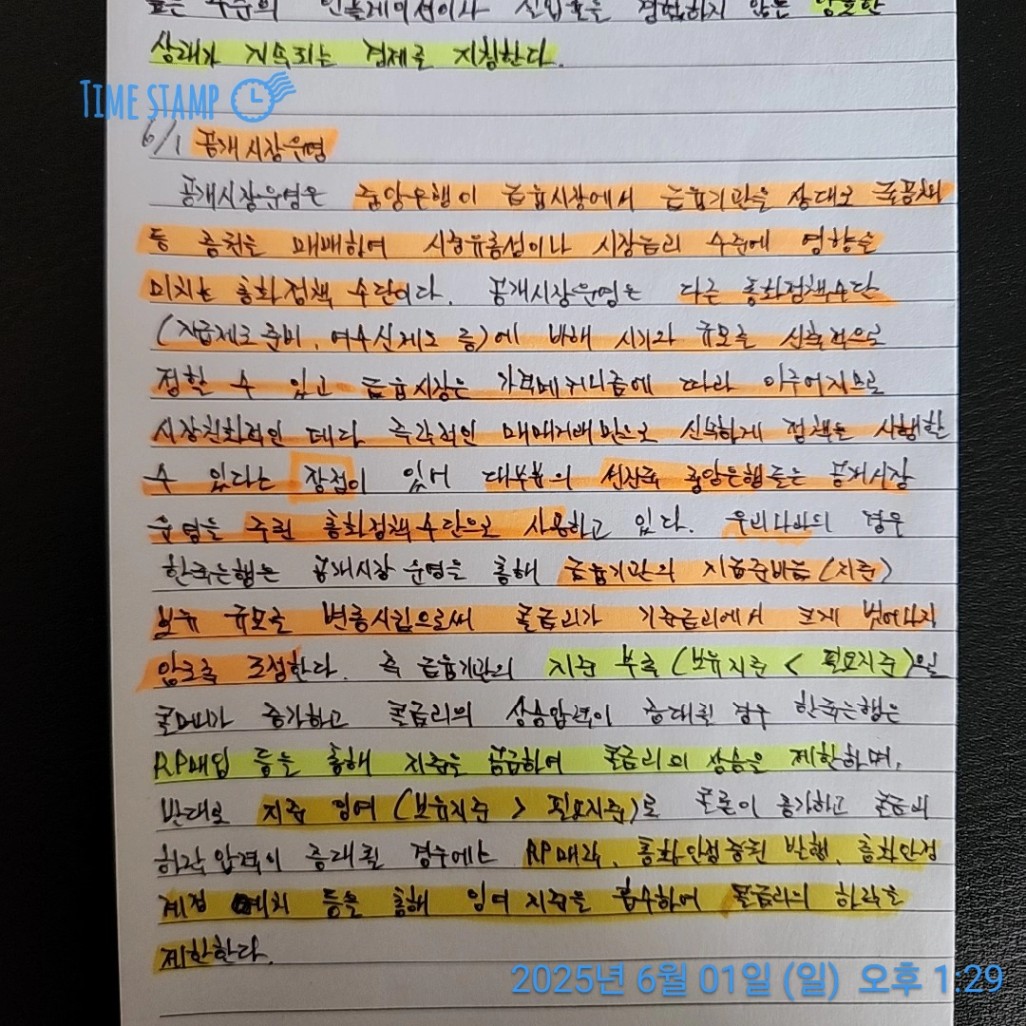 높은 수준의 인플레이션이나 실업률을 경험하지 않는 양호한
상태가 지속되는 경제를 지칭한다.
TIME STAMP
6/1 공개시장운영
공개시장운영은 중앙은행이 금융시장에서 금융기관을 상대로 국공채
등 증권을 매매하여 시중유동성이나 시장금리 수준에 영향을
미치는 통화정책 수단이다. 공개시장운영은 다른 통화정책수단
(지급제도준비, 여수신제도 등)에 비해 시기와 규모를 신축적으로
정할 수 있고 금융시장은 가격메커니즘에 따라 이루어지므로
시장친화적인 데다 즉각적인 매매거래만으로 신속하게 정책을 시행할
수 있다는 장점이 있어 대부분의 선진국 중앙은행들은 공개시장
운영을 주된 통화정책수단으로 사용하고 있다. 우리나라의 경우
한국은행은 공개시장 운영을 통해 금융기관의 지급준비금(지준)
보유 규모를 변동시킴으로써 콜금리가 기준금리에서 크게 벗어나지
않도록 조정한다. 즉 금융기관의 지준 부족(보유지준 < 필요지준)일
콜머니가 증가하고 콜금리의 상승압력이 증대될 경우 한국은행은
RP매입 등을 통해 지준을 공급하여 콜금리의 상승을 제한하며,
반대로 지준 잉여 (보유지준 > 필요지준)로 콜론이 증가하고 콜금리
하락 압력이 증대될 경우에는 RP매각, 통화안정증권 발행, 통화안정
계정 예치 등을 통해 잉여 지준을 흡수하여 콜금리의 하락을
제한한다.
2025년 6월 01일 (일) 오후 1:29